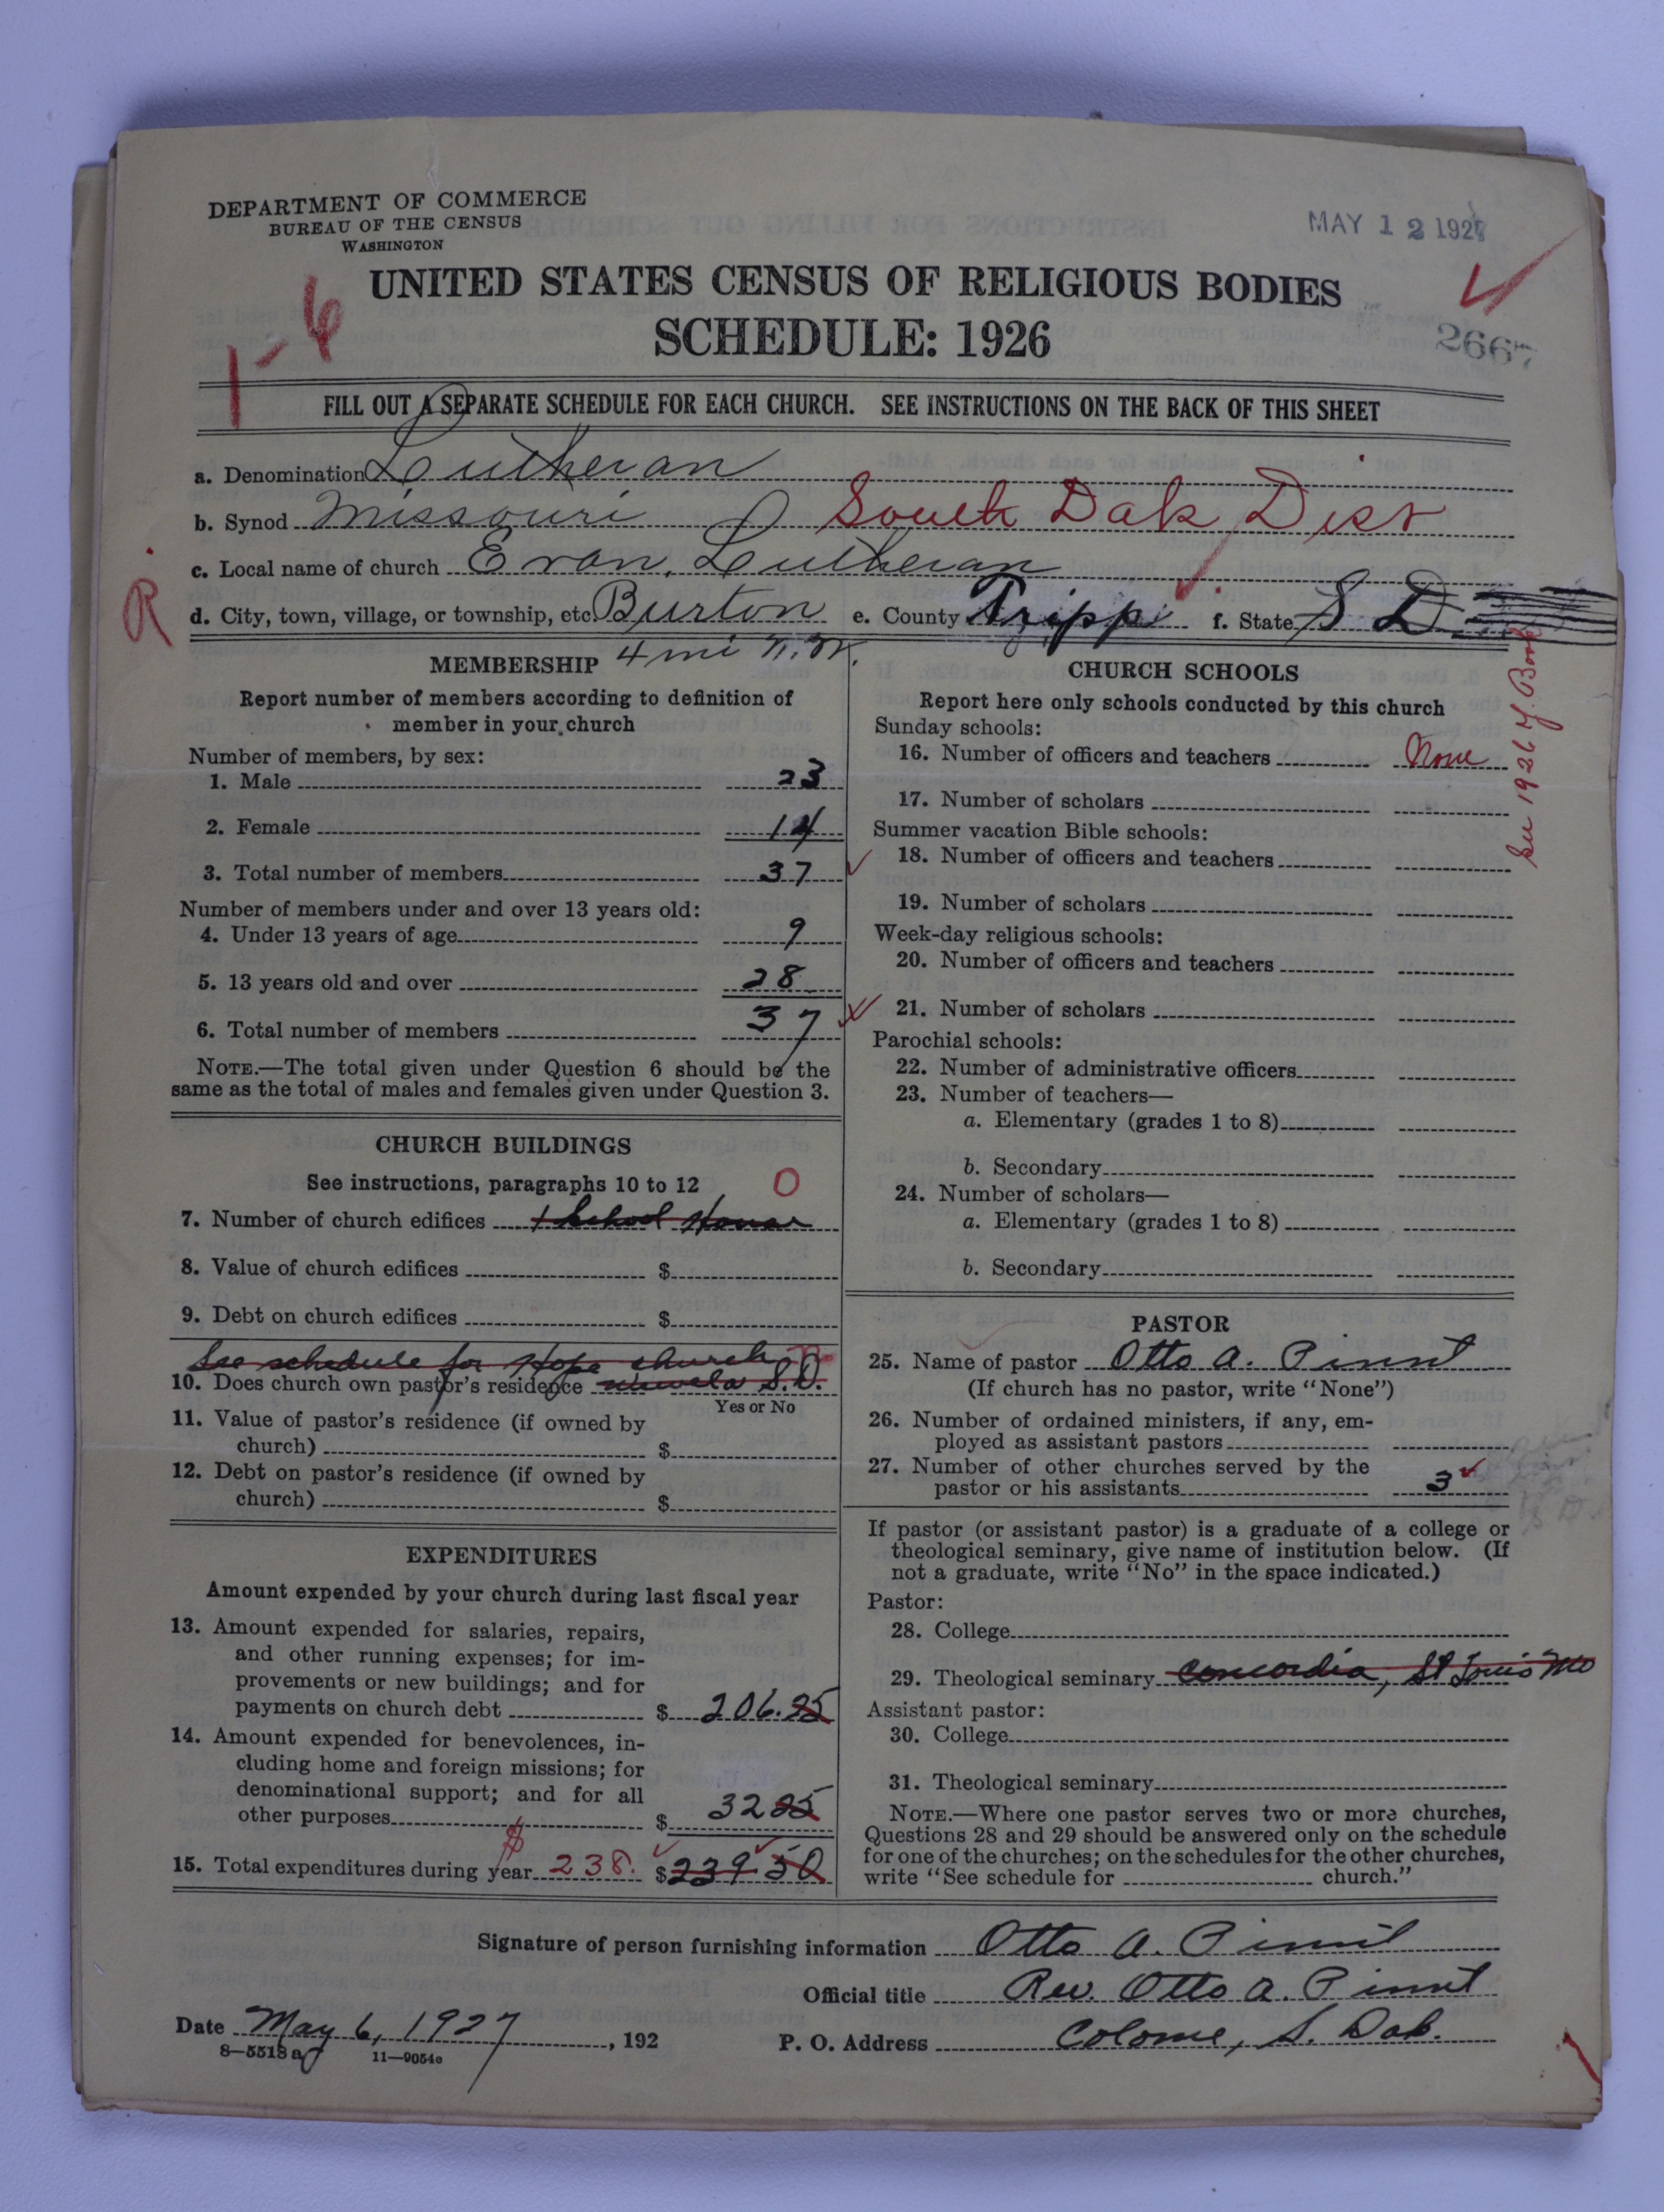 DEPARTMENT OF COMMERCE
BUREAU OF THE CENSUS
WASHINGTON
MAY 12 1927
UNITED STATES CENSUS OF RELIGIOUS BODIES
SCHEDULE: 1926
1-6
2667
FILL OUT A SEPARATE SCHEDULE FOR EACH CHURCH. SEE INSTRUCTIONS ON THE BACK OF THIS SHEET
a. Denomination Lutheran
b. Synod Missouri South Dak Dist
c. Local name of church Evan. Lutheran
R d. City, town, village, or township, etc. Burton e. County Tripp f. State S D
4 mi N.W.
MEMBERSHIP
Report number of members according to definition of
member in your church
Number of members, by sex:
1. Male 23
2. Female 14
3. Total number of members 37
Number of members under and over 13 years old:
4. Under 13 years of age 9
5. 13 years old and over 28
6. Total number of members 37
NOTE.—The total given under Question 6 should be the
same as the total of males and females given under Question 3.
CHURCH BUILDINGS
See instructions, paragraphs 10 to 12 0
7. Number of church edifices 1 School House
8. Value of church edifices $
9. Debt on church edifices $
See schedule for Hope church
10. Does church own pastor's residence S.D.
Yes or No
11. Value of pastor's residence (if owned by
church) $
12. Debt on pastor's residence (if owned by
church) $
EXPENDITURES
Amount expended by your church during last fiscal year
13. Amount expended for salaries, repairs,
and other running expenses; for im-
provements or new buildings; and for
payments on church debt $ 206.25
14. Amount expended for benevolences, in-
cluding home and foreign missions; for
denominational support; and for all
other purposes $ 32 25
15. Total expenditures during year $ 238. $239.50
CHURCH SCHOOLS
Report here only schools conducted by this church
Sunday schools:
16. Number of officers and teachers None
17. Number of scholars
Summer vacation Bible schools:
18. Number of officers and teachers
19. Number of scholars
Week-day religious schools:
20. Number of officers and teachers
21. Number of scholars
Parochial schools:
22. Number of administrative officers
23. Number of teachers—
a. Elementary (grades 1 to 8)
b. Secondary
24. Number of scholars—
a. Elementary (grades 1 to 8)
b. Secondary
See 1926 Y. Book
PASTOR
25. Name of pastor Otto A. Pinnt
(If church has no pastor, write "None")
26. Number of ordained ministers, if any, em-
ployed as assistant pastors
27. Number of other churches served by the
pastor or his assistants 3
If pastor (or assistant pastor) is a graduate of a college or
theological seminary, give name of institution below. (If
not a graduate, write "No" in the space indicated.)
Pastor:
28. College
29. Theological seminary Concordia, St Louis Mo
Assistant pastor:
30. College
31. Theological seminary
NOTE.—Where one pastor serves two or more churches,
Questions 28 and 29 should be answered only on the schedule
for one of the churches; on the schedules for the other churches,
write "See schedule for church."
Signature of person furnishing information Otto A. Pinnt
Official title Rev. Otto A. Pinnt
Date May 6, 1927, 192 P. O. Address Colome, S. Dak.
8—5518 a 11—9054e